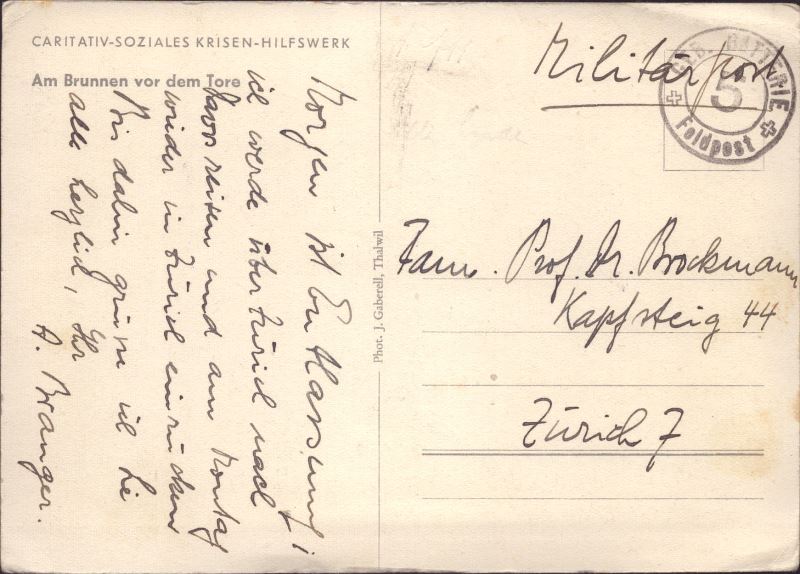 CARITATIV-SOZIALES KRISEN-HILFSWERK
Am Brunnen vor dem Tore
Morgen ist Entlassung!
ich werde über Zürich nach
Davos reisen und am Montag
wieder in Zürich einrücken
Bis dahin grüsse ich Sie
alle herzlich, Ihr
A. Branger.
Phot. J. Gaberell, Thalwil
Militärpost
BATTERIE
5
Feldpost
Fam. Prof. Dr. Brockmann
Kapfsteig 44
Zürich 7